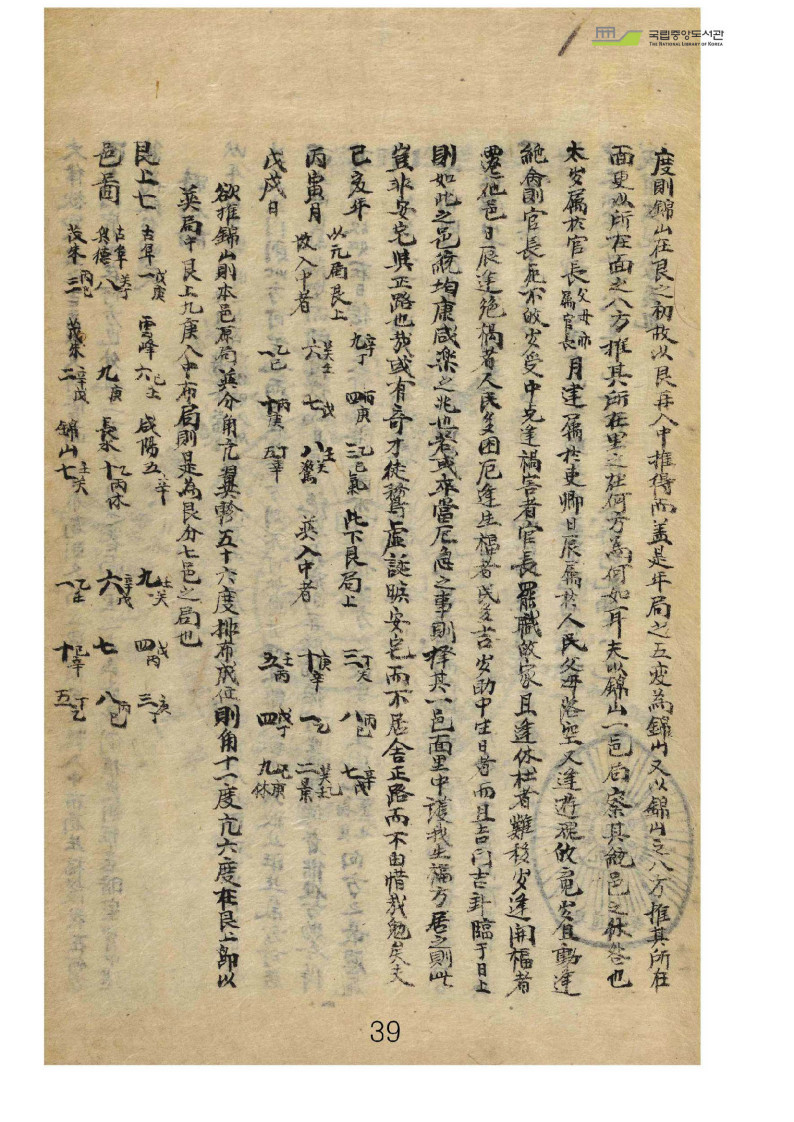 국립중앙도서관
THE NATIONAL LIBRARY OF KOREA
度則錦山在艮之初故以艮再入中推得而盖是年局之五度為錦山又以錦山之八方推其所在
面更以所在面之八方推其所在里之在何方為何如耳夫以錦山一邑局察其統邑之休咎也
太岁属於官長父母亦属官長月建属於吏卿日辰属於人民父母落空又逢遊魂的竟岁宜動逢
絶命則官長无不故岁受中克逢禍害者官長罷職故家且逢休杜者難移岁逢開福者
思他邑日辰逢絶禍者人民多困厄逢生福者民多吉岁助中宫日者而且吉門吉卦臨于日上
則如此之邑統均康咸樂之兆也若或本當厄急之事則择其一邑面里中護我生福方居之則此
豈非安宅與正路也哉或有奇才徒鶩虛誕曠安宅而不居舍正路而不由惜哉勉矣夫
己亥年 以元局艮上 九辛丁 四丙庚 三乙己氣 此下艮局上 三丁癸 八丙己 七辛戊
丙寅月 故入中者 六癸壬 七戊 八壬癸驚 英入中者 十庚辛 一乙 二癸壬景
戊戌日 一乙己 十丙庚 五丁辛 五壬丙 四戊丁 九己庚休
欲推錦山則本邑原局英分角亢翼軫五十六度排布成位則角十一度亢六度在艮上即以
英局中艮上九庚入中布局則是為艮分七邑之局也
艮上七 古阜一戊庚 雪峰六己壬 咸陽五辛 九壬癸 四戊丙 三庚丁
邑啚 古阜興德八癸丁 九庚 長水十乙丙休 六辛戊 七 八丙己
茂朱三丙己 茂朱二辛戊 錦山七壬癸 一乙壬 十己辛 五丁乙
39